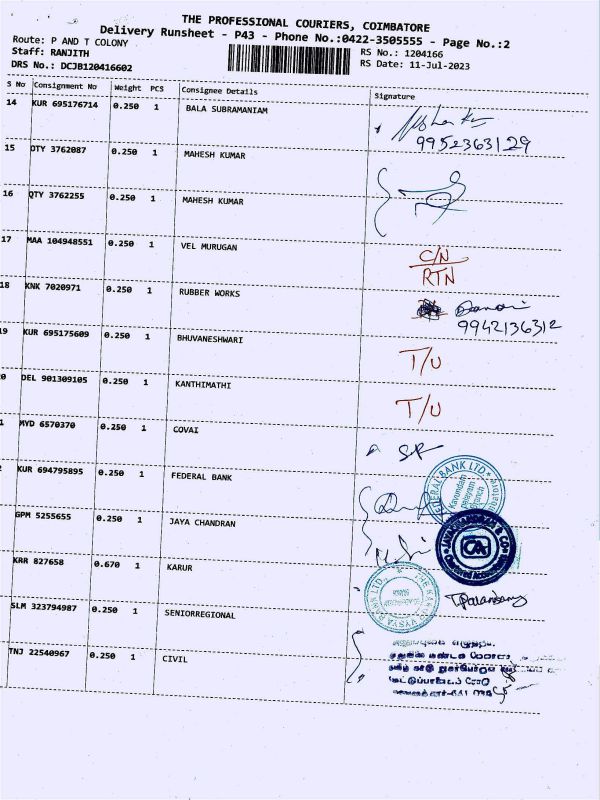 THE PROFESSIONAL COURIERS, COIMBATORE
Delivery Runsheet - P43 - Phone No.:0422-3505555 - Page No.:2
Route: P AND T COLONY
RS No.: 1204166
Staff: RANJITH
RS Date: 11-Jul-2023
DRS No.: DCJB120416602
S No Consignment No Weight PCS Consignee Details Signature
14 KUR 695176714 0.250 1 BALA SUBRAMANIAM
9952363129
15 QTY 3762087 0.250 1 MAHESH KUMAR
16 QTY 3762255 0.250 1 MAHESH KUMAR
17 MAA 104948551 0.250 1 VEL MURUGAN C/N
RTN
18 KNK 7020971 0.250 1 RUBBER WORKS
9942136312
19 KUR 695175609 0.250 1 BHUVANESHWARI T/U
0 DEL 901309105 0.250 1 KANTHIMATHI T/U
1 MYD 6570370 0.250 1 COVAI
KUR 694795895 0.250 1 FEDERAL BANK
FEDERAL BANK LTD
Kavundam
palayam
Branch
GPM 5255655 0.250 1 JAYA CHANDRAN
& CO
CA
Chartered Accountants
KRR 827658 0.670 1 KARUR
THE KARUR VYSYA BANK LTD.
SLM 323794987 0.250 1 SENIORREGIONAL
TNJ 22540967 0.250 1 CIVIL